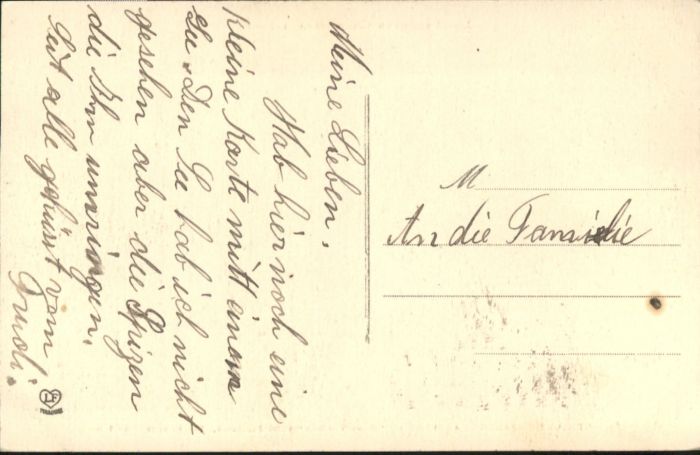 Meine Lieben.
Hab hier noch eine
kleine Karte mitt einem
See. Den See hab ich nicht
gesehen aber die Spizen
die Ihn umringen.
Seit alle geküsst vom
Trudi.
M
An die Familie
LF